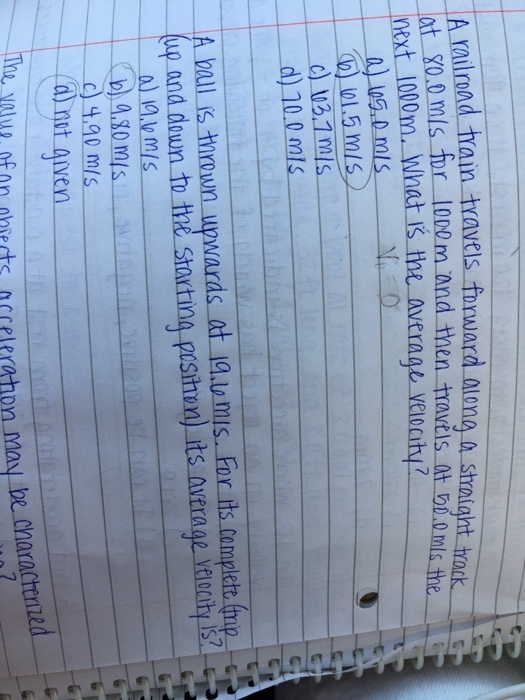 A railroad train travels forward along a straight track
at 80.0 m/s for 1000m and then travels at 50.0m/s the
next 1000m. What is the average velocity?
a) 65.0 m/s
b) 61.5 m/s
c) 63.7 m/s
d) 70.0 m/s
A ball is thrown upwards at 19.6 m/s. For its complete (trip
(up and down to the starting position) its average velocity is?
a) 19.6 m/s
b) 9.80 m/s
c) 4.90 m/s
d) not given
The value of an objects acceleration may be characterized